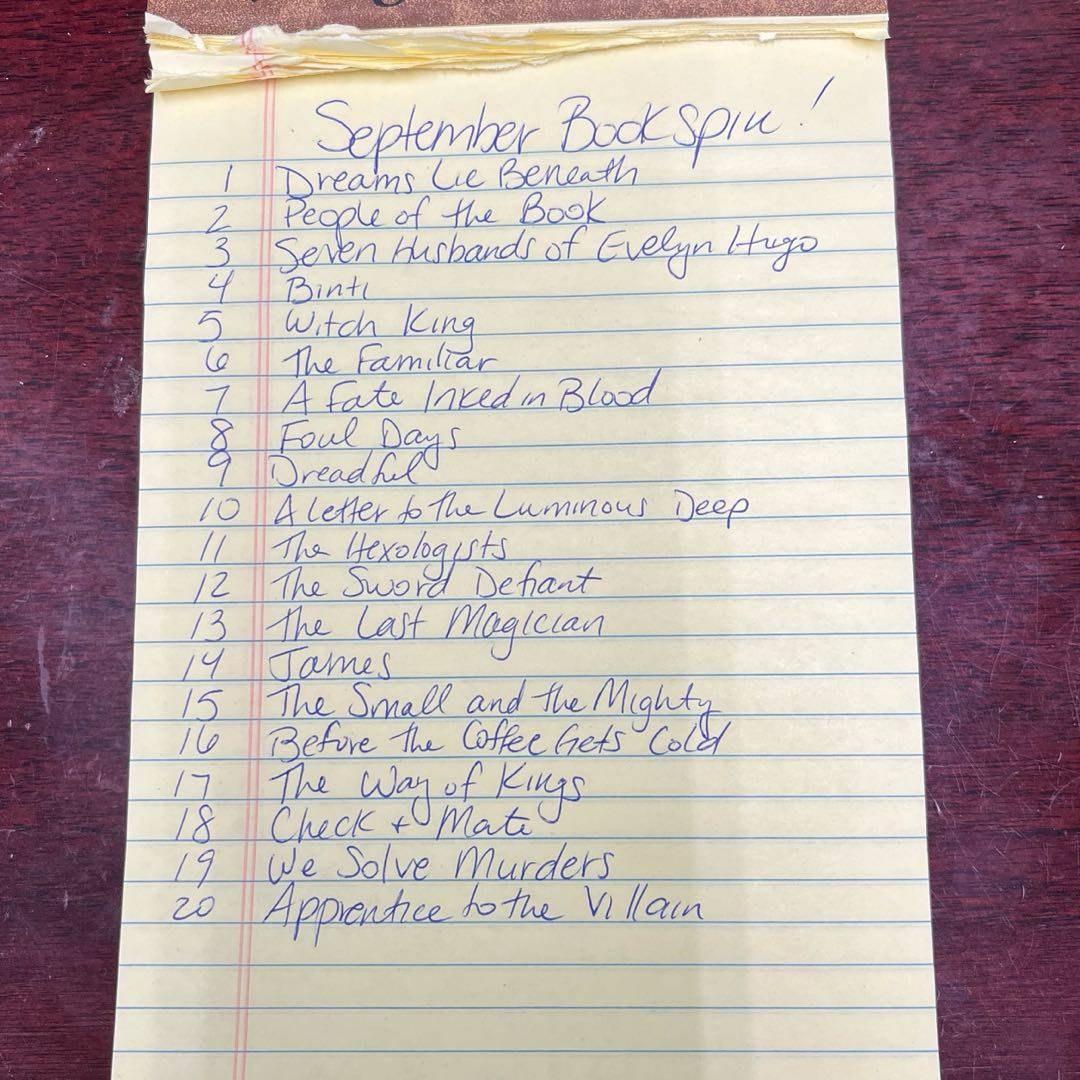 September BookSpin!
1 Dreams Lie Beneath
2 People of the Book
3 Seven Husbands of Evelyn Hugo
4 Binti
5 Witch King
6 The Familiar
7 A Fate Inked in Blood
8 Foul Days
9 Dreadful
10 A Letter to the Luminous Deep
11 The Hexologists
12 The Sword Defiant
13 The Last Magician
14 James
15 The Small and the Mighty
16 Before the Coffee Gets Cold
17 The Way of Kings
18 Check + Mate
19 We Solve Murders
20 Apprentice to the Villain